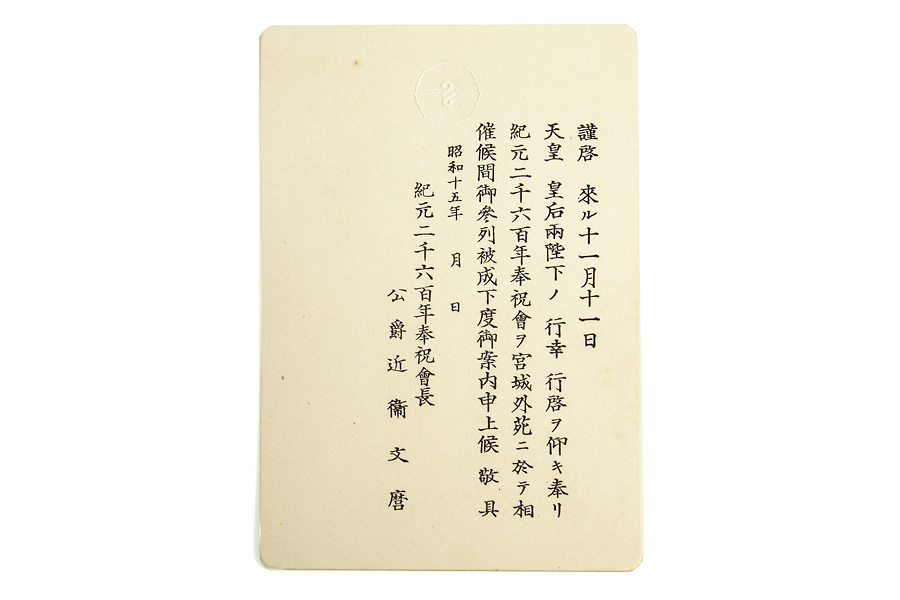 謹啓　來ル十一月十一日
天皇　皇后兩陛下ノ　行幸　行啓ヲ仰キ奉リ
紀元二千六百年奉祝會ヲ宮城外苑ニ於テ相
催候間御參列被成下度御案内申上候　敬具
昭和十五年　月　日
紀元二千六百年奉祝會長
公爵近衞文麿